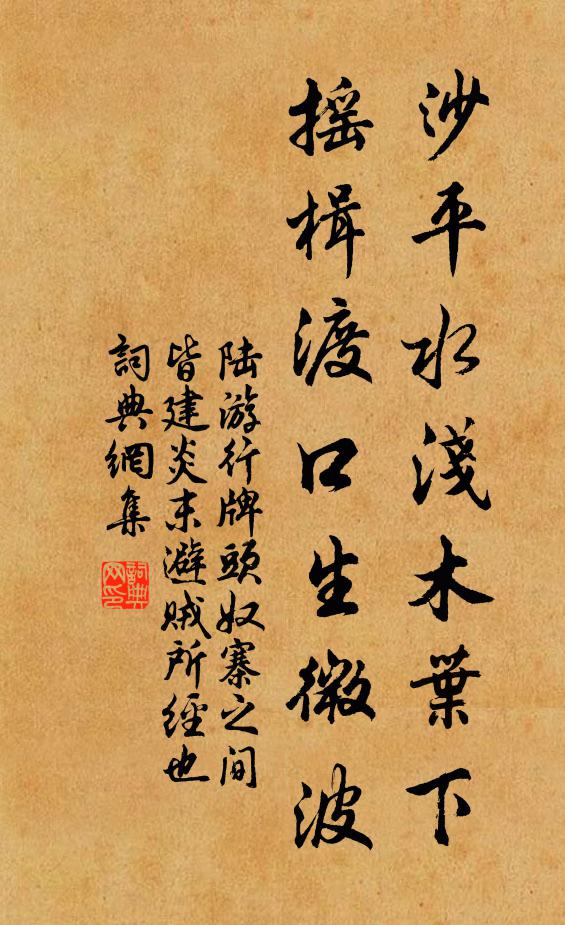 沙平水淺木葉下
摇楫渡口生微波
陆游行牌頭奴寨之间
皆建炎末避贼所經也
詞典網集
詞典网印